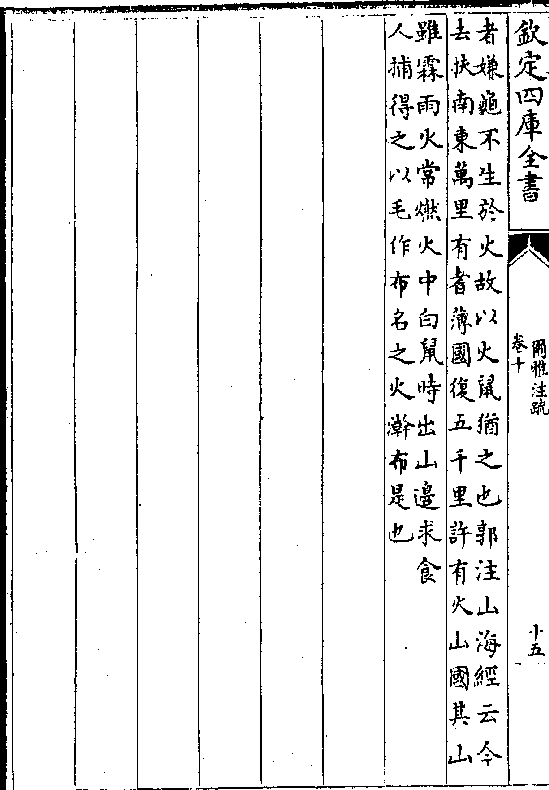 欽定四庫全書
爾雅注疏
卷十
十五
者嫌龜不生於火故以火鼠猶之也郭注山海經云今
去扶南東萬里有耆薄國復五千里許有火山國其山
雖霖雨火常燃火中白鼠時出山邊求食
人捕得之以毛作布名之火澣布是也